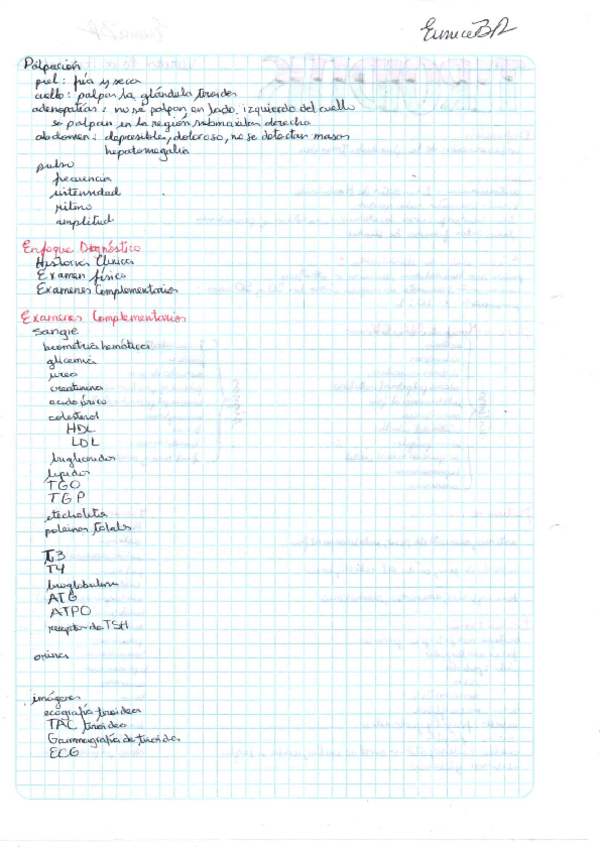 EuniceBA
Palpación
piel: fría y seca
cuello: palpar la glándula tiroides
adenopatías: no se palpan en lado izquierdo del cuello
se palpan en la región submaxilar derecho
abdomen: depresible, doloroso, no se detectan masas
hepatomegalia
pulso
frecuencia
intensidad
ritmo
amplitud
Enfoque Diagnóstico
Historia Clínica
Examen físico
Examenes Complementarios
Examenes Complementarios
Sangre
biometria hemática
glicemia
urea
creatinina
acido úrico
colesterol
HDL
LDL
trigliceridos
lipidos
TGO
TGP
electrolitos
proteinas totales
T3
T4
tiroglobulina
ATG
ATPO
receptor de TSH
orina
imágenes
ecografía tiroidea
TAC tiroidea
Gammagrafía de tiroides
ECG